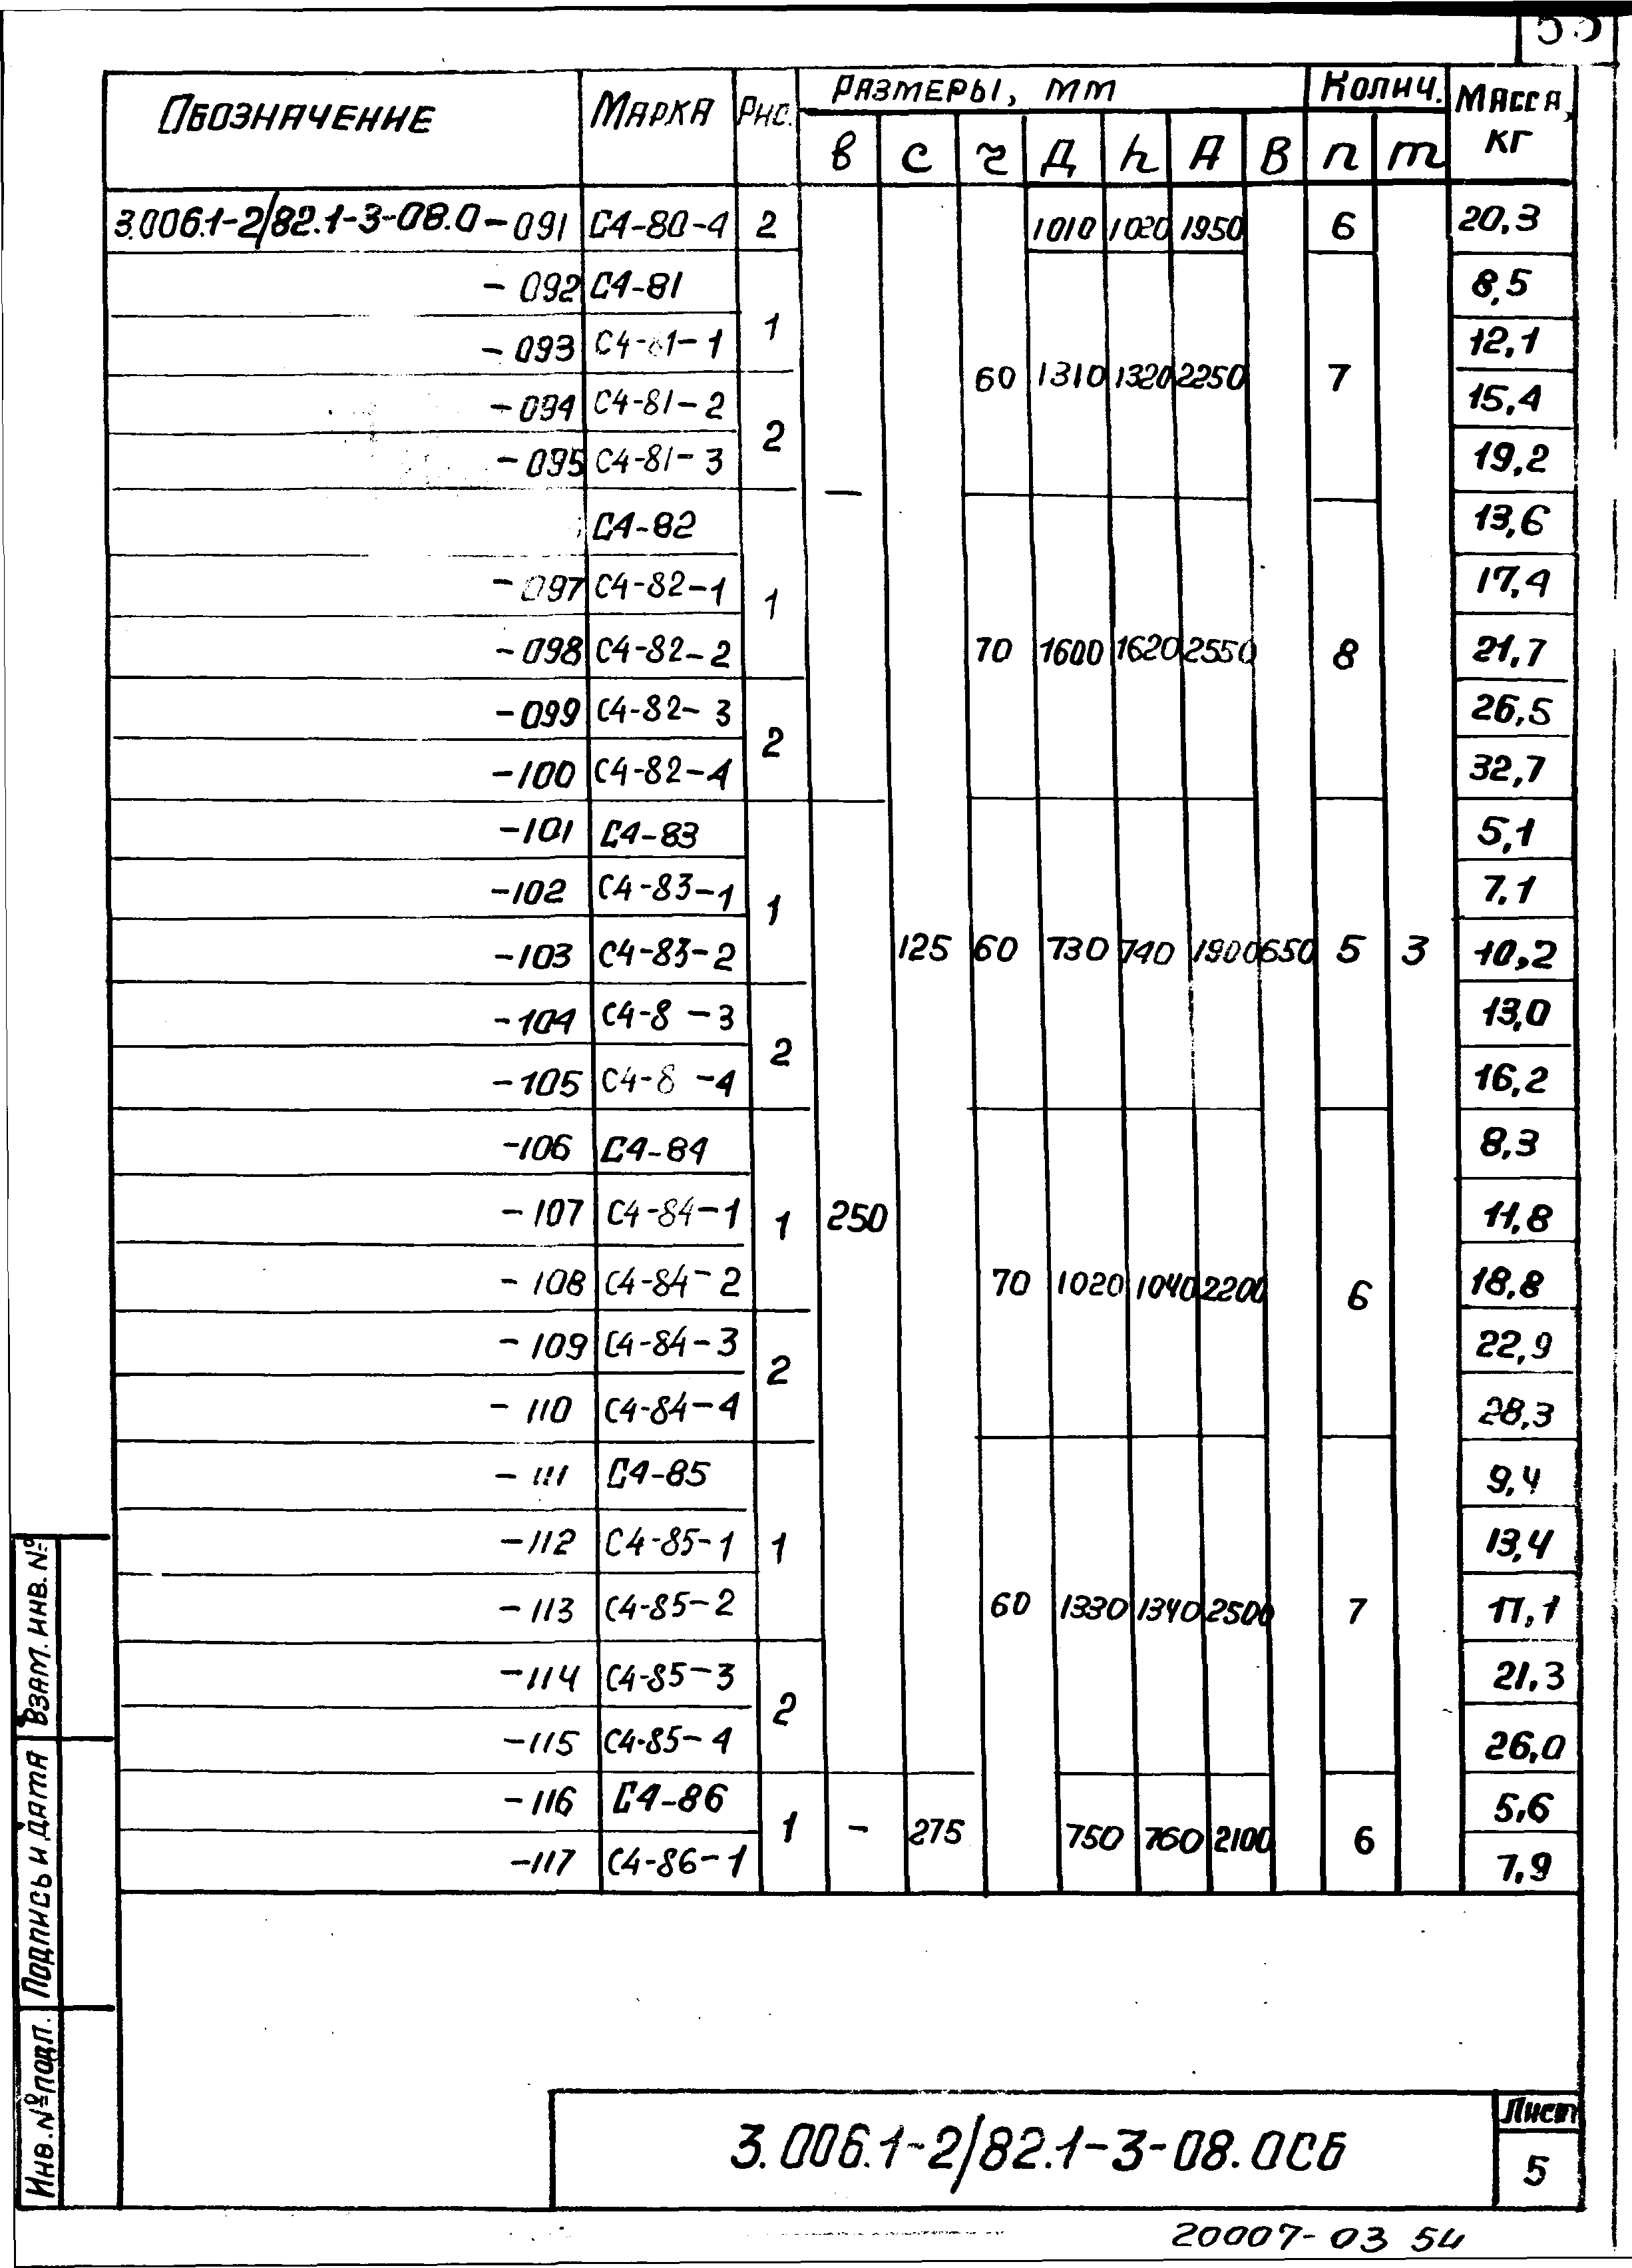 53
Обозначение Марка Рис. Размеры, мм Колич. Масса, кг
в с г Д h А В n m
3.006.1-2/82.1-3-08.0-091 С4-80-4 2 1010 1020 1950 6 20,3
-092 С4-81 8,5
-093 С4-81-1 1 12,1
60 1310 1320 2250 7
-094 С4-81-2 15,4
-095 С4-81-3 2 19,2
—
С4-82 13,6
-097 С4-82-1 1 17,4
-098 С4-82-2 70 1600 1620 2550 8 21,7
-099 С4-82-3 26,5
-100 С4-82-4 2 32,7
-101 С4-83 5,1
-102 С4-83-1 1 7,1
-103 С4-83-2 125 60 730 740 1900 650 5 3 10,2
-104 С4-8 -3 13,0
-105 С4-8 -4 2 16,2
-106 С4-84 8,3
-107 С4-84-1 1 250 11,8
-108 С4-84-2 70 1020 1040 2200 6 18,8
-109 С4-84-3 22,9
-110 С4-84-4 2 28,3
-111 С4-85 9,4
-112 С4-85-1 1 13,4
-113 С4-85-2 60 1330 1340 2500 7 17,1
-114 С4-85-3 21,3
-115 С4-85-4 2 26,0
-116 С4-86 5,6
1 - 275 750 760 2100 6
-117 С4-86-1 7,9
Взам. инв. №
Подпись и дата
Инв. № подл.
3.006.1-2/82.1-3-08.0СБ
Лист
5
20007-03 54